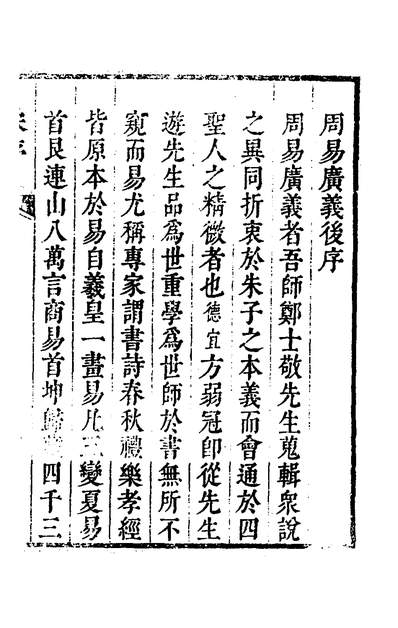 周易廣義後序
周易廣義者吾師鄭士敬先生蒐輯衆說
之異同折衷於朱子之本義而會通於四
聖人之精微者也德宜方弱冠即從先生
遊先生品為世重學為世師於書無所不
窺而易尤稱專家謂書詩春秋禮樂孝經
皆原本於易自羲皇一畫易凡三變夏易
首艮連山八萬言商易首坤歸藏四千三